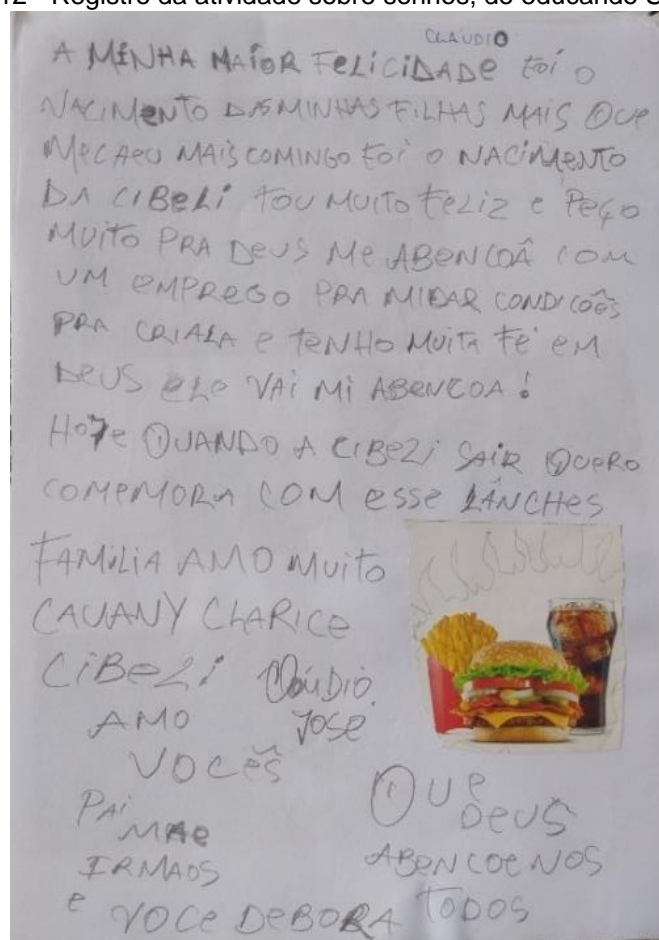 12 - Registro da atividade sobre sonhos, do educando
CLAUDIO
A MINHA MAIOR FELICIDADE FOI O
NACIMENTO DAS MINHAS FILHAS MAIS QUE
MAIS COMINGO FOI O NACIMENTO
DA CIBELI TOU MUITO FELIZ E PEÇO
MUITO PRA DEUS ME ABENCOÂ COM
UM EMPREGO PRA MIDAR CONDICÕES
PRA CRIALA E TENHO MUITA FÉ EM
DEUS ELE VAI MI ABENCOA!
HOJE QUANDO A CIBELI SAIR QUERO
COMEMORA COM ESSE LÂNCHES
FAMILIA AMO MUITO
CAUANY CLARICE
CIBELI Cláudio
AMO JOSE
VOCÊS
PAI
MAE
IRMAOS
E VOCE DEBORA
QUE
DEUS
ABENCOE NOS
TODOS